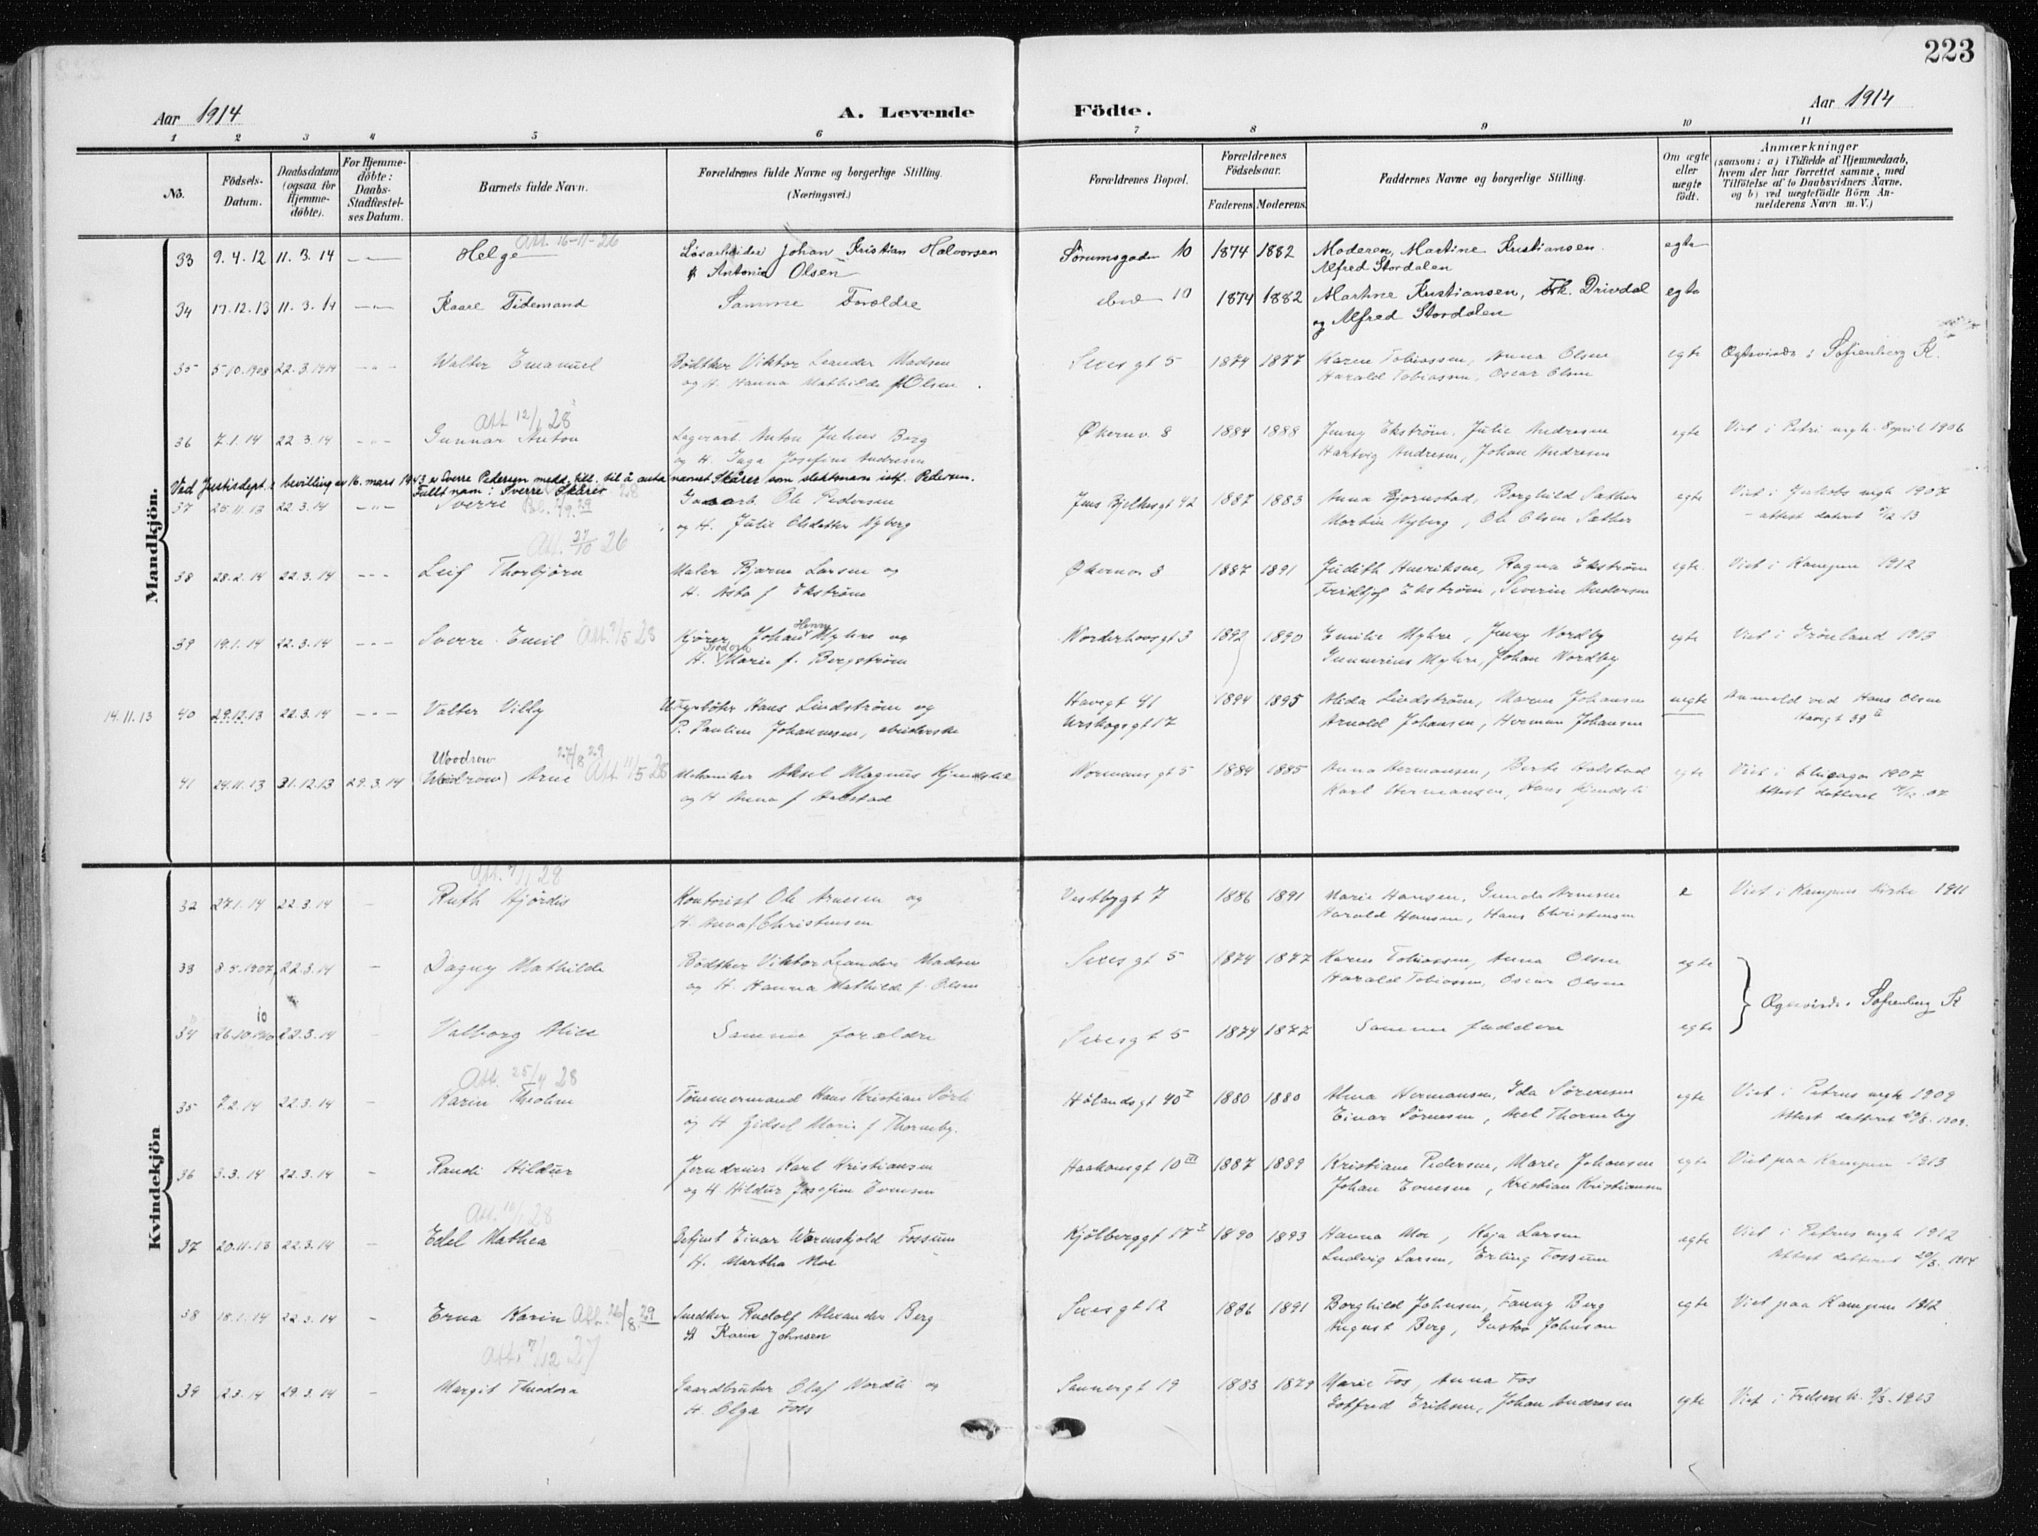 223
Aar 1914 A. Levende Födte. Aar 1914
1 2 3 4 5 6 7 8 9 10 11
No. Födsels-Datum. Daabsdatum (ogsaa for Hjemme-döbte). For Hjemme-döbte: Daabs-Stadfæstel-ses Datum. Barnets fulde Navn. Forældrenes fulde Navne og borgerlige Stilling. (Næringsvei.) Forældrenes Bopæl. Forældrenes Födselsaar. Faderens Moderens. Faddernes Navne og borgerlige Stilling. Om ægte eller uægte födt. Anmærkninger (saasom: a) i Tilfælde af Hjemmedaab, hvem der har forrettet samme, med Tilföielse af to Daabsvidners Navne, og b) ved uægtefödte Börn An-melderens Navn m. V.)
Mandkjön.
Att. 16-11-26
33 9.4.12 11.3.14 Helge Løsarbeider Johan Kristian Halvorsen Sørumsgaden 10 1874 1882 Moderen, Martine Kristiansen egte
& Antonia Olsen Alfred Stordalen
34 17.12.13 11.3.14 Kaare Tidemand Samme Forældre ibid 10 1874 1882 Martine Kristiansen, Frk. Drivdal egte
og Alfred Stordalen
35 5.10.1908 22.3.1914 Walter Emanuel Bødtker Viktor Leander Madsen Sexesgt 5 1874 1877 Karen Tobiassen, Anna Olsen egte Ogsaa i Sofienberg K.
og H. Hanna Mathilde f. Olsen Harald Tobiassen, Oscar Olsen
Att 12/1 28
36 7.1.14 22.3.14 Gunnar Anton Lagerarb. Anton Julius Berg Økernv. 8 1884 1888 Jenny Ekstrøm, Julie Andresen egte Viet i Petri mgh. 8 april 1906
og H. Inga Josefine Andresen Hartvig Andresen, Johan Andresen
Ved Justisdept.s bevilling av 16. mars 1943 er Sverre Pedersen medd. till. til å anta namnet Skårer som slektsnavn istf. Pedersen.
Fullt nam: Sverre Skårer
37 25.11.13 22.3.14 Sverre Ole Pedersen Jens Bjelkesgt 42 1887 1883 Anna Bjørnstad, Borghild Sæther egte Viet i Jakobs mgh 1907
og H. Julie Olsdatter Nyberg Martin Nyberg, Ole Olsen Sæther attest dateret 13
Att. 27/10 26
38 28.2.14 22.3.14 Leif Thorbjørn Maler Bjarne Larsen og Økernv 8 1887 1891 Judith Henriksen, Ragna Ekstrøm egte Viet i Kampen 1912
H. Asta f. Ekstrøm Fridtjof Ekstrøm, Severin Andersen
39 19.1.14 22.3.14 Sverre Emil Att 7/5 28 Kjører Johan Henry Myhre og Norderhovsgt 3 1892 1890 Emilie Myhre, Jenny Nordby egte Viet i Grønland 1913
H. Teodora Marie f. Bergstrøm Gunnerius Myhre, Johan Nordby
14.11.13 40 29.12.13 22.3.14 Valter Villy Hans Lindstrøm og Havegt 41 1894 1895 Alida Lindstrøm, Maren Johansen uegte Anmeld ved Hans Olsen
P. Pauline Johannesen, arbeiderske Urskogsgt 17 Arnold Johansen, Herman Johansen Havegt 39
Woodrow 27/8 29
41 24.11.13 31.12.13 29.3.14 (Woidrow) Arne Att 11/5 25 Mekaniker Aksel Magnus Kjendsli Normansgt 5 1884 1885 Anna Hermansen, Berte Halstad egte Viet i Chicago 1907
og H Anna f Halstad Karl Hermansen, Hans Kjendsli Attest datteret 07
Kvindekjön
Att. 9/1 28
32 27.1.14 22.3.14 Ruth Hjørdis Kontorist Ole Arnesen og Vestbygt 7 1886 1891 Marie Hansen, Gunda Arnesen e Viet i Kampens kirke 1911
H. Anna f Christensen Harald Hansen, Hans Christensen
33 8.4.1907 22.3.14 Dagny Mathilde Bødtker Viktor Leander Madsen Sexesgt 5 1874 1877 Karen Tobiassen, Anna Olsen egte
og H. Hanna Mathilde f. Olsen Harald Tobiassen, Oscar Olsen
Ogsaa i Sofienberg K
10
34 26.10.1910 22.3.14 Valborg Alice Samme forældre Sexesgt 5 1874 1877 Samme faddere egte
Att. 25/4 28
35 7.2.14 22.3.14 Karin Theoline Tømmermand Hans Kristian Sørli Hølandsgt 40 I 1880 1880 Alma Hermansen, Ida Sørensen egte Viet i Petrus mgh 1909
og H. Gidsel Marie f Thorneby. Einar Sørensen, Axel Thorneby Attest datteret 29/8.1909.
36 3.3.14 22.3.14 Randi Hildur Jerndreier Karl Kristiansen Haakonsgt 10 III 1887 1889 Kristiane Pedersen, Marie Johansen egte Viet paa Kampen 1913
og H Hildur Josefine Evensen Johan Evensen, Kristian Kristiansen
Att. 16/1 28
37 20.11.13 22.3.14 Edel Mathea Betjent Einar Wormskjold Fossum Kjølberggt 17 I 1890 1893 Hanna Moe, Kaja Larsen egte Viet i Petrus mgh 1912
H. Martha Moe Ludvig Larsen, Erling Fossum Attest datteret 20/3.1914
38 18.1.14 22.3.14 Erna Karin Att. 26/8 29 Snedker Rudolf Alexander Berg Sexesgt 12 1886 1891 Borghild Johnsen, Fanny Berg egte Viet paa Kampen 1912
H Karen Johnsen August Berg, Gustav Johnson
Att. 7/12 27
39 2.3.14 29.3.14 Margit Theodora Gaardbruker Olaf Nordli og Sannergt 19 1883 1879 Marie Fos, Anna Fos egte Viet i 1913
H. Olga Foss Gotfred Eriksen, Johan Andresen